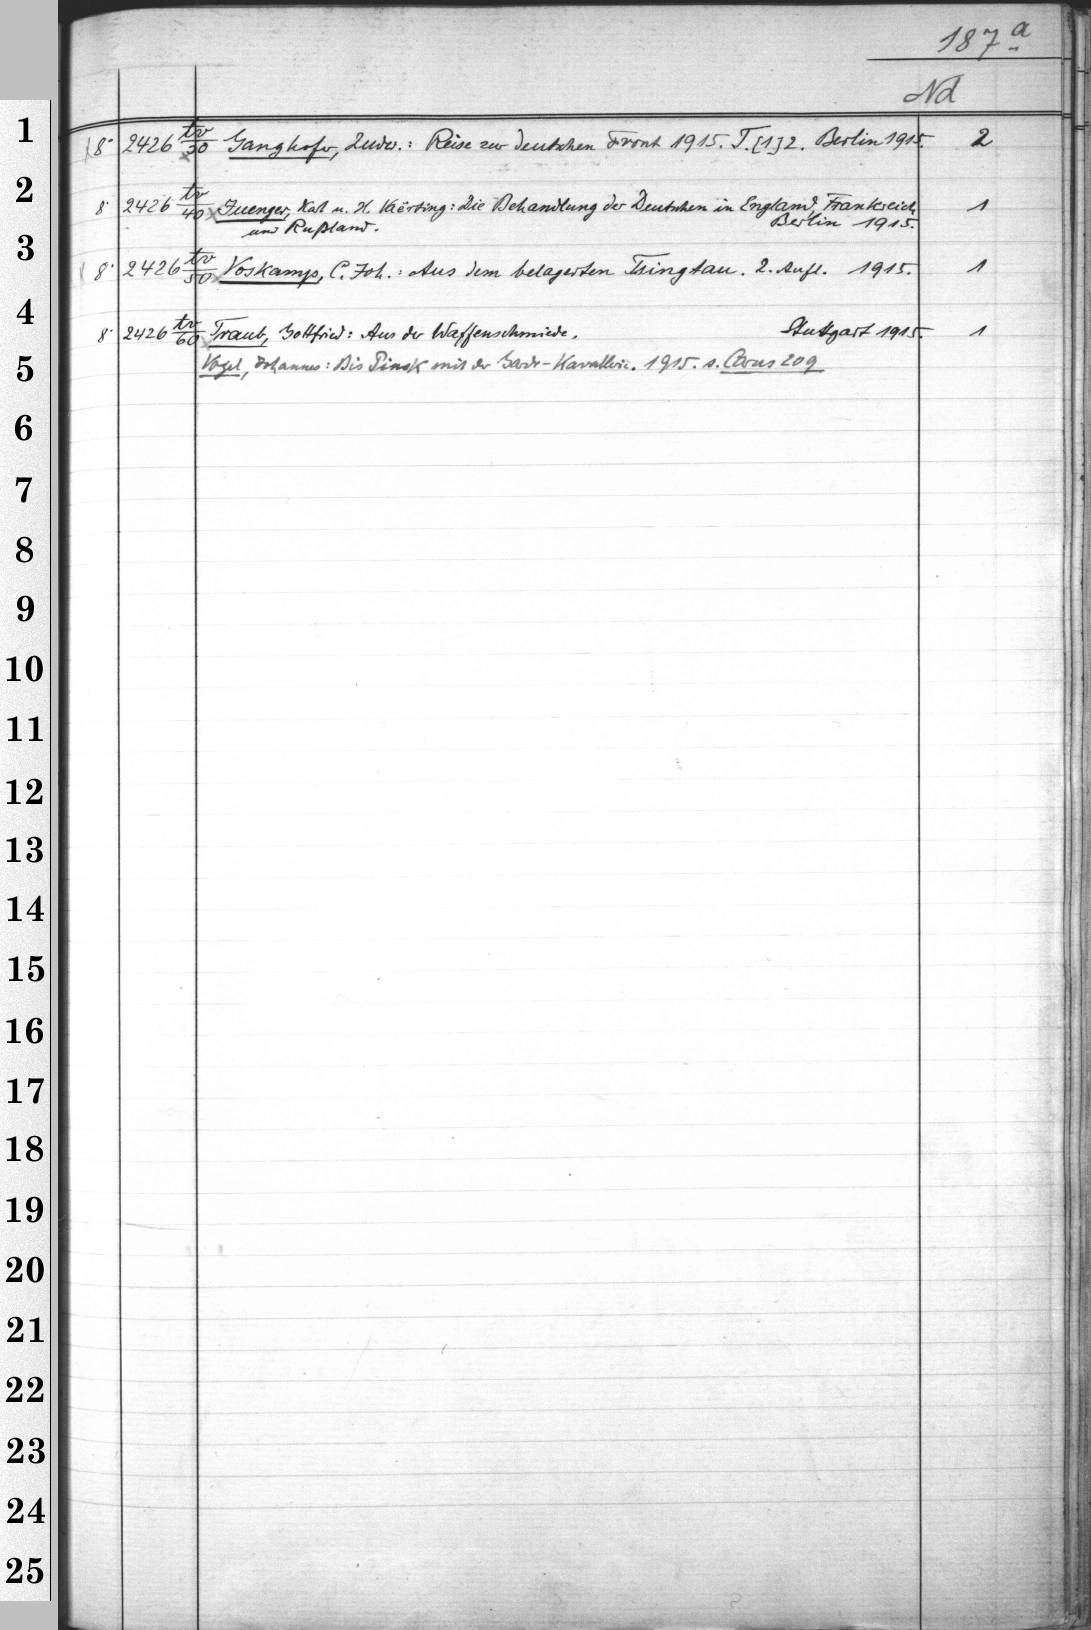 187 a
Nd
1
8° 2426 tv/30 Ganghofer, Ludw.: Reise zur deutschen Front 1915. T. [1] 2. Berlin 1915. 2
2
8° 2426 tv/40 Juenger, Karl u. H. Körting: Die Behandlung der Deutschen in England, Frankreich
und Rußland. Berlin 1915. 1
3
8° 2426 tv/50 Voskamp, C. Joh.: Aus dem belagerten Tsingtau. 2. Aufl. 1915. 1
4
8° 2426 tv/60 Traub, Gottfried: Aus der Waffenschmiede. Stuttgart 1915. 1
5
Vogel, Johannes: Bis Pinsk mit der Garde-Kavallerie. 1915. s. 209
6
7
8
9
10
11
12
13
14
15
16
17
18
19
20
21
22
23
24
25